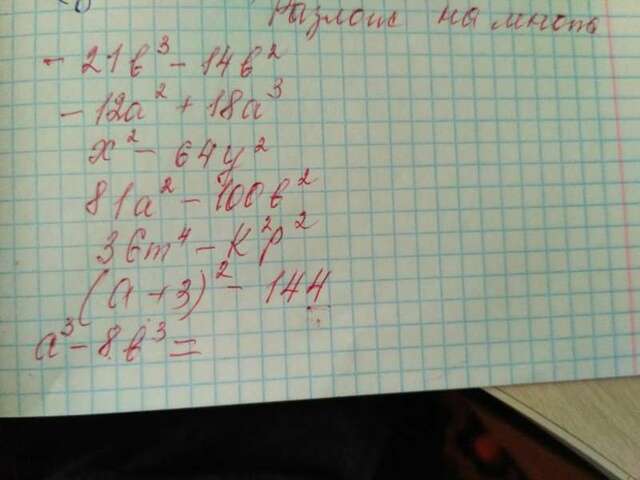 Разлож на множ
- 21b³ - 14b²
- 12a² + 18a³
x² - 64y²
81a² - 100b²
36m⁴ - k²p²
(a + 3)² - 144
a³ - 8b³ =